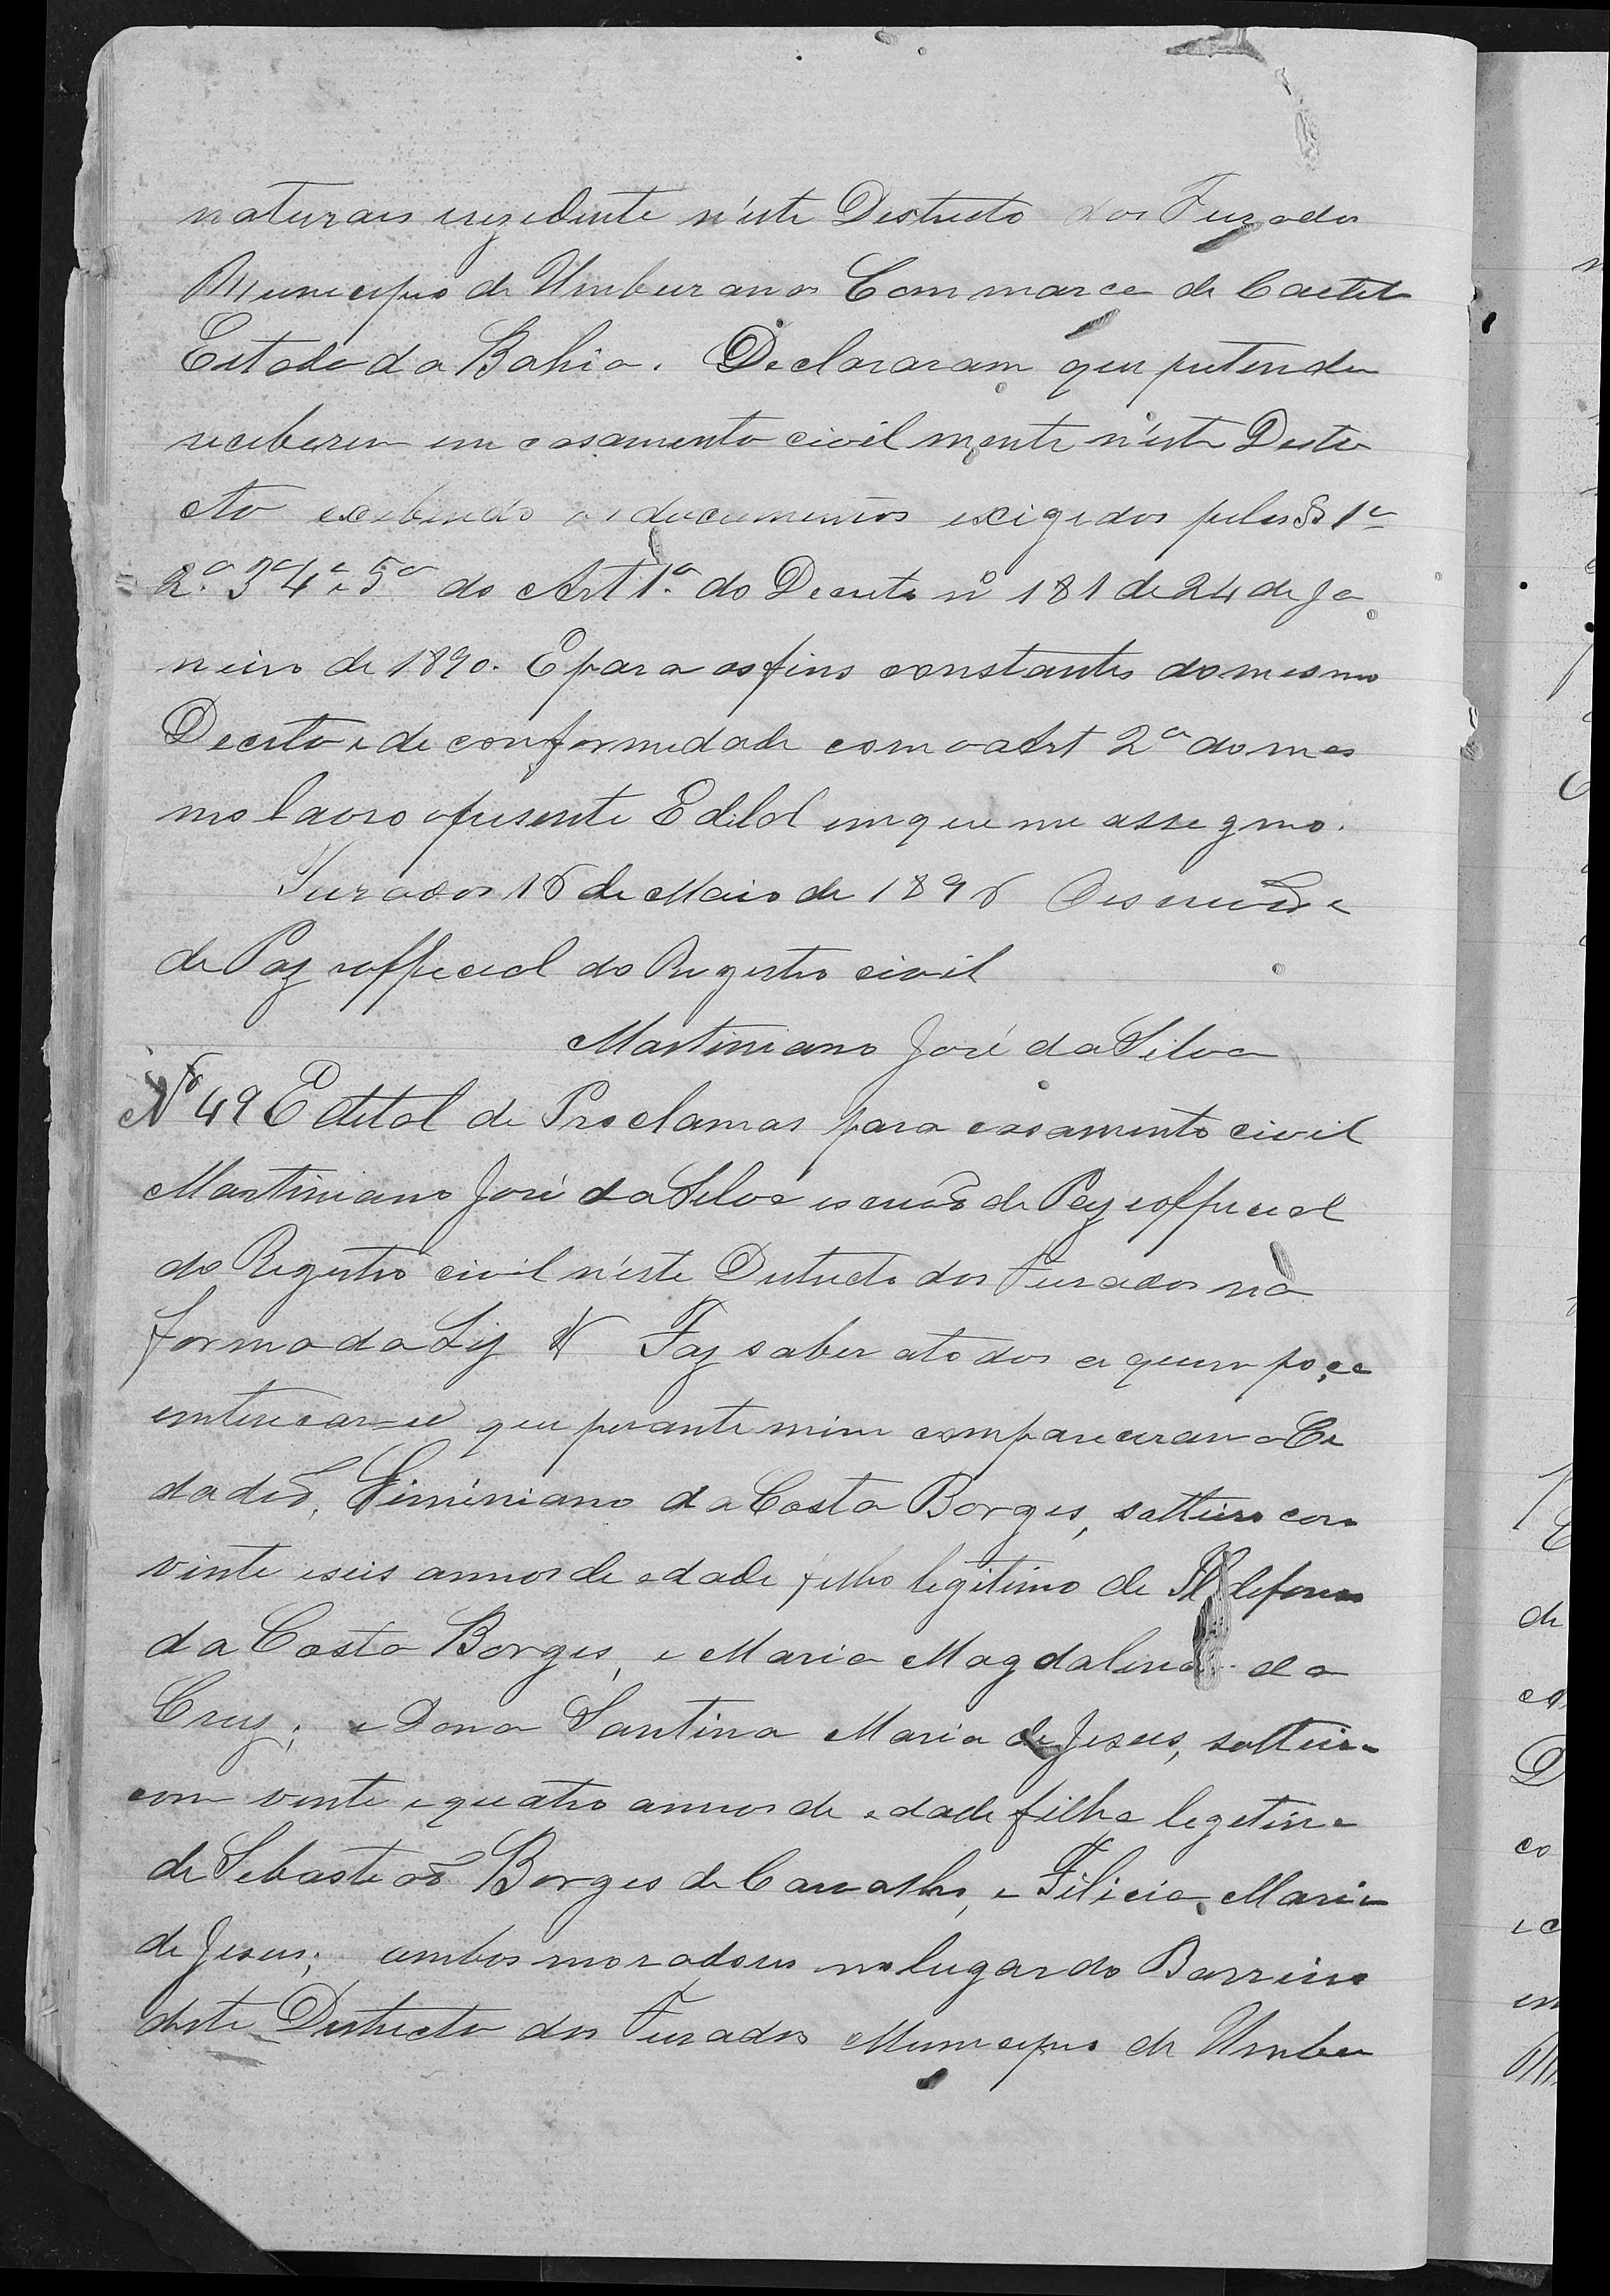 naturais e rezedente n'este Destricto dos Furados
Municipio de Umburanas Commarca de Caeteté
Estado da Bahia. Declararam que pretender
receberem em casamento civilmente n'este Destri
cto exebindo os documentos exigedos pelos §§ 1º
2º 3º 4º e 5º do Art 1º do Decreto nº 181 de 24 de Ja
neiro de 1890. E para os fins constantes do mesmo
Decreto e de conformedade com o Art 2º do mes
mo lavro o presente Edital em que me assegno.
Furados 16 de Maio de 1896 O escrivão
de Paz e official do Registro civil
Martiniano José da Silva
Nº 49 Edital de Proclamas para casamento civil
Martiniano José da Silva escrivão de Paz e official
do Registro civil n'este Destricto dos Furados na
forma da Ley & Faz saber a todos a quem poça
enterecar-se que perante mim compareceram o Ci
dadão, Siminiano da Costa Borges, solteiro com
vinte e seis annos de edade filho legitimo de Ildefonso
da Costa Borges, e Maria Magdalena da
Cruz; e Dona Santina Maria de Jesus, solteira
com vinte e quatro annos de edade filha legetima
de Sebastião Borges de Carvalho, e Filicia Maria
de Jesus; ambos moradores no lugar do Barreiro
deste Destricto dos Furados Municipio de Umbu